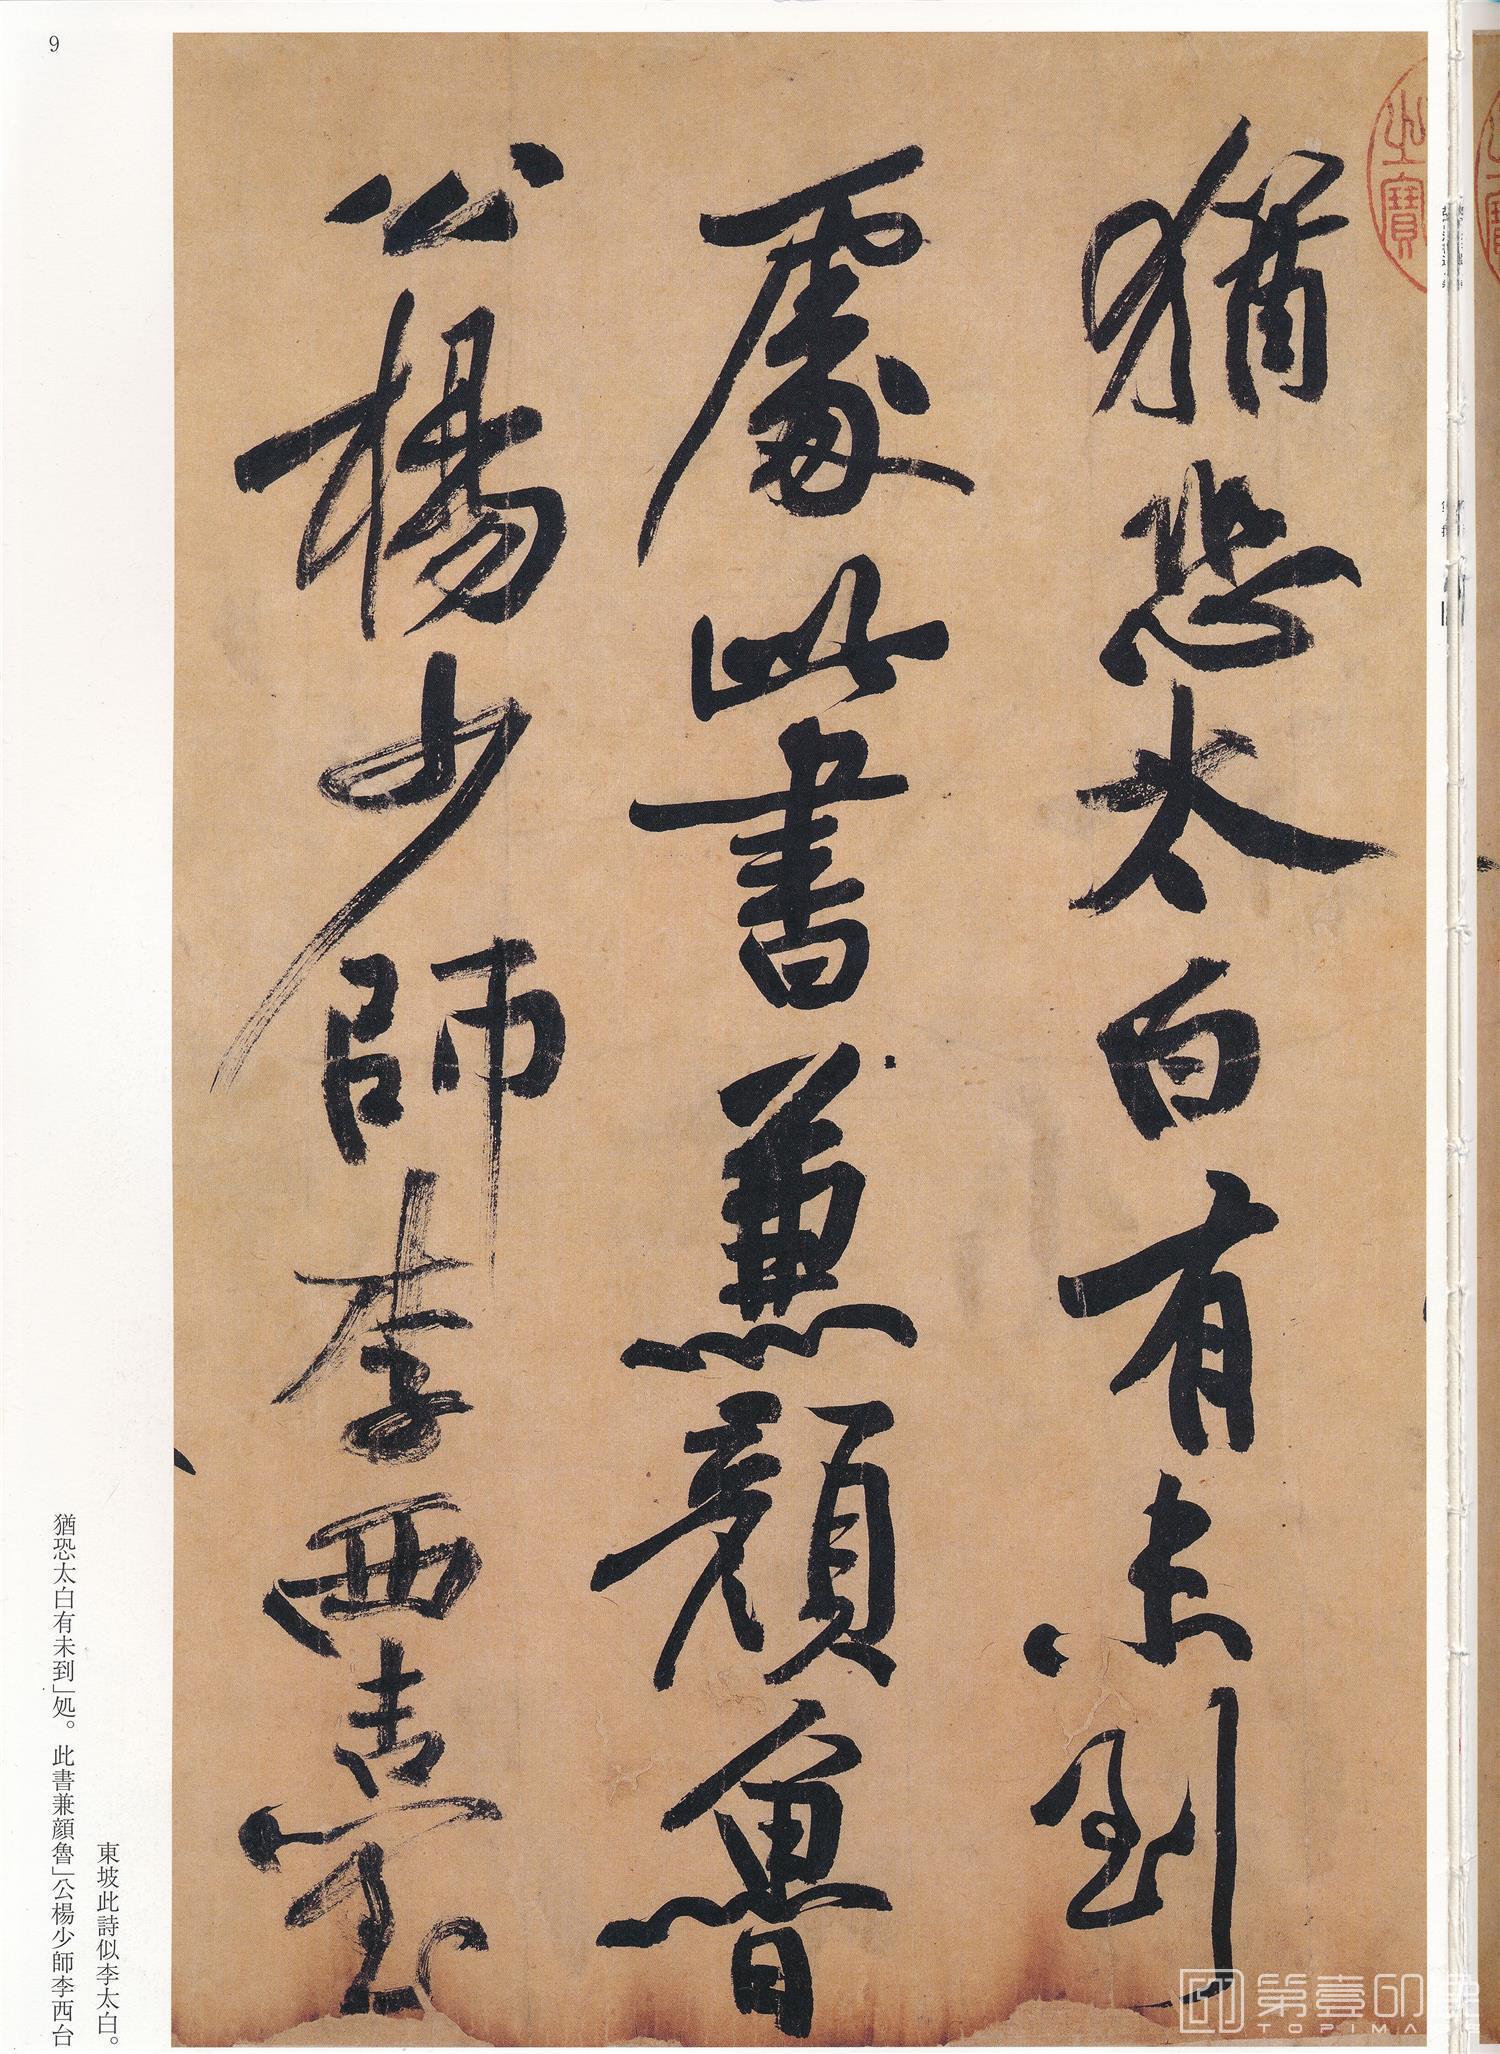 猶恐太白有未到
處此書兼顏魯
公楊少師李西臺
之寶
9
東坡此詩似李太白。
猶恐太白有未到」処。此書兼顔魯」公楊少師李西台
第壹印象
TOPIMAGE